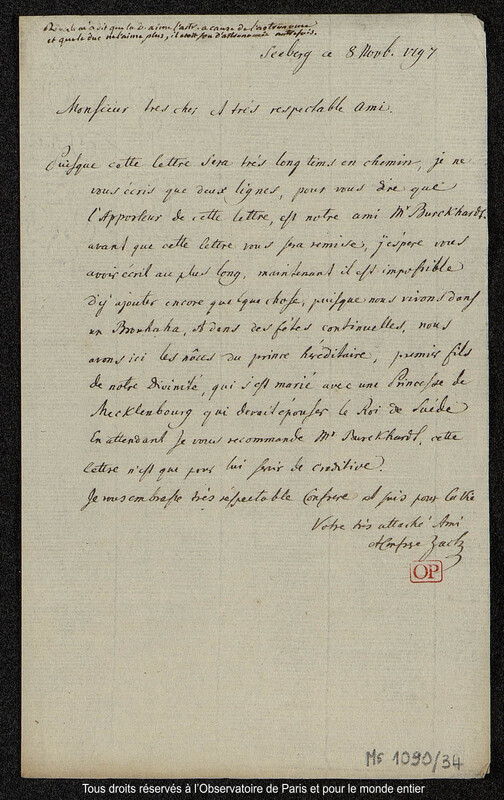 m'a dit que la D. aime l'astr. a cause de l'astronome
et que le duc ne l'aime plus, il etoit fou d'astronomie autrefois.
Seeberg ce 8 Novb. 1797
Monsieur très cher et très respectable ami.
Puisque cette lettre sera très long tems en chemin, je ne
vous écris que deux lignes, pour vous dire que
l'Apporteur de cette lettre, est notre ami Mr Burckhardt.
avant que cette lettre vous sera remise, j'espere vous
avoir écrit au plus long, maintenant il est impossible
d'y ajouter encore quelque chose, puisque nous vivons dans
un Brouhaha, et dans des fêtes continuelles, nous
avons ici les nôces du prince héréditaire, premier fils
de notre Divinité, qui s'est marié avec une Princesse de
Mecklenbourg qui devait épouser le Roi de Suéde
En attendant Je vous recommande Mr Burckhardt, cette
lettre n'est que pour lui servir de creditive.
Je vous embrasse très réspectable Confrere et suis pour la vie
Votre très attaché Ami
Zach
OP
Ms 1090/34
Tous droits réservés à l'Observatoire de Paris et pour le monde entier